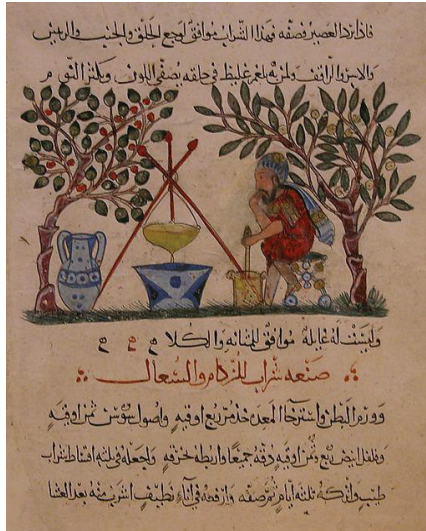 فاذا برد العصير فصفه فهذا الشراب موافق لوجع الحلق والجنب
ولمن به بلغم غليظ في حلقه يصفي اللون ويكثر النوم م
وليست له غايلة موافق للمثانه والكلا
صنعه شراب للزكام والسعال
وورم البطن واسترخا المعده خذ مر ربع اوقيه واصول سوس ثمن اوقيه
وفلفل ابيض ربع وثمن اوقيه دقه جميعا واربطه بخرقه واجعله في ثلثه اقساط شراب
طيب واتركه ثلثه ايام ثم صفه وارفعه في اناء نظيف اشرب منه بعد العشا